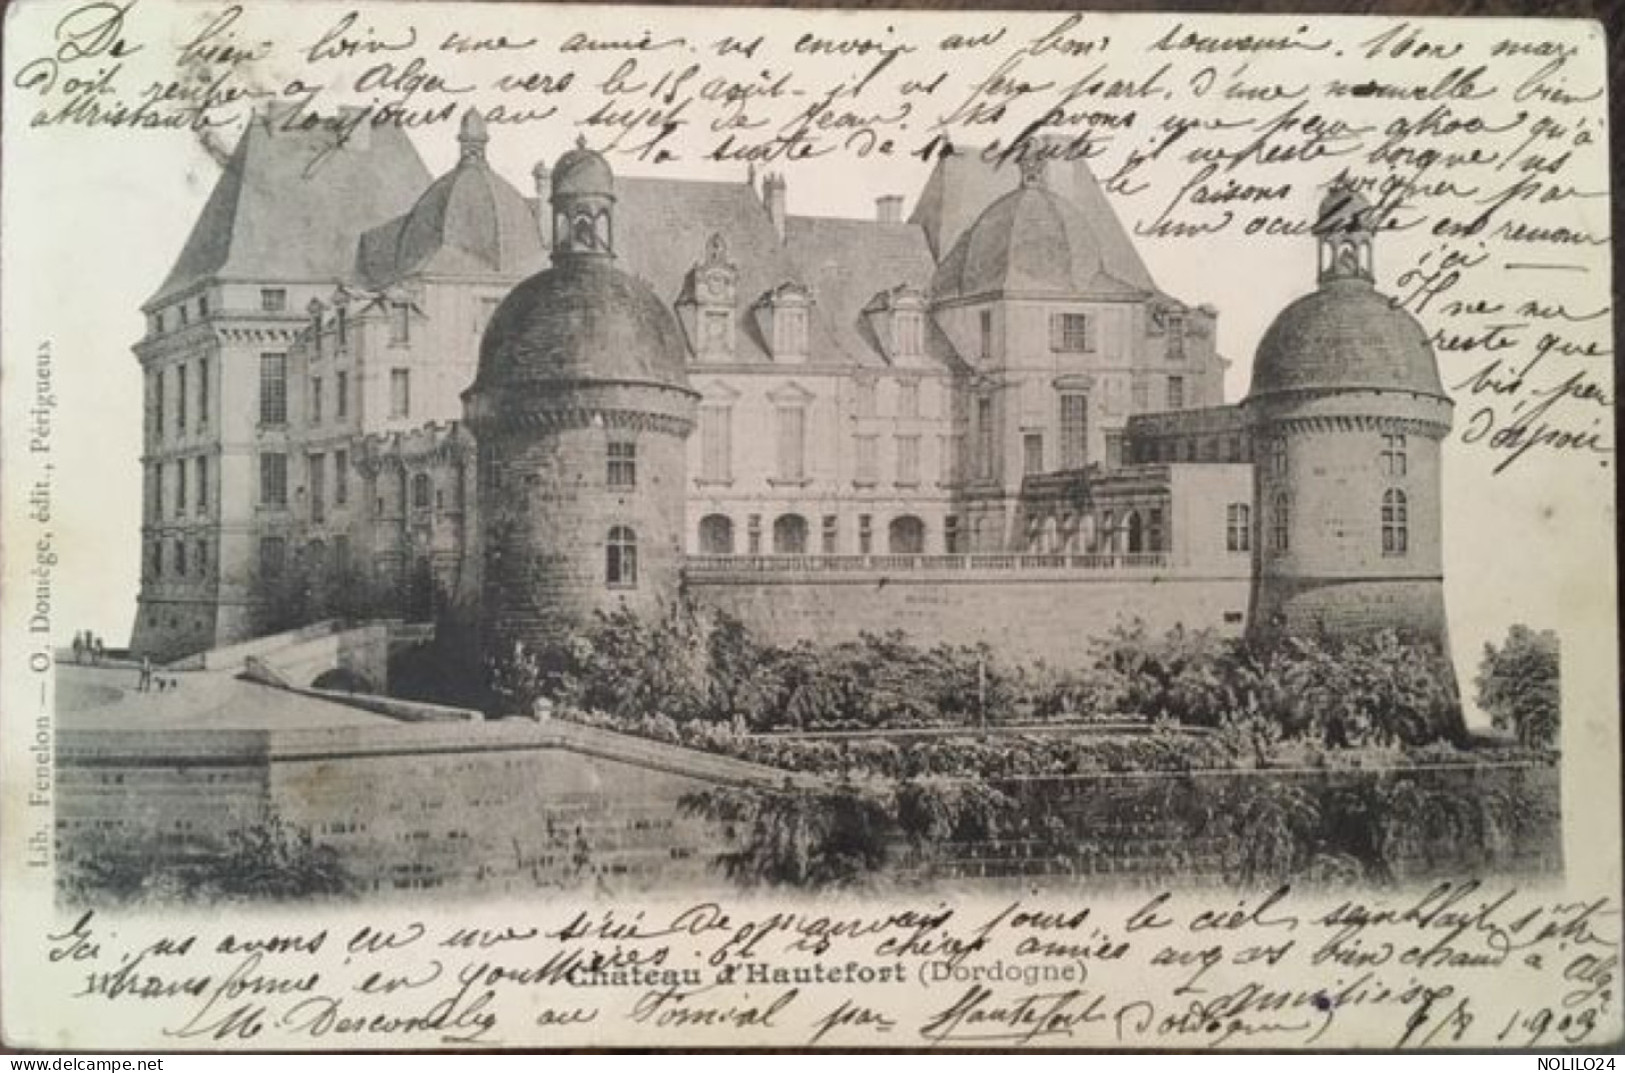 De bien loin une amie vs envoie un bon souvenir. Mon mari
doit rentrer à Alger vers le 15 août - il vs fera part d'une nouvelle bien
attristante, toujours au sujet de Jean. Ns avons une peur qu'à
la suite de sa chute il ne reste borgne, ns
le faisons soigner par
un oculiste en renom
ici —
Il ne ns
reste que
bien peu
d'espoir.
Lib. Fenelon — O. Domège, édit., Périgueux
Ici, ns avons eu une série de mauvais jours, le ciel semblait s'être
transformé en gouttières. Et vs chères amies avez vs bien chaud à Alger
Château d'Hautefort (Dordogne)
Amitiés
M. au par Hautefort (Dordogne) 7/8 1903
NOLILO24